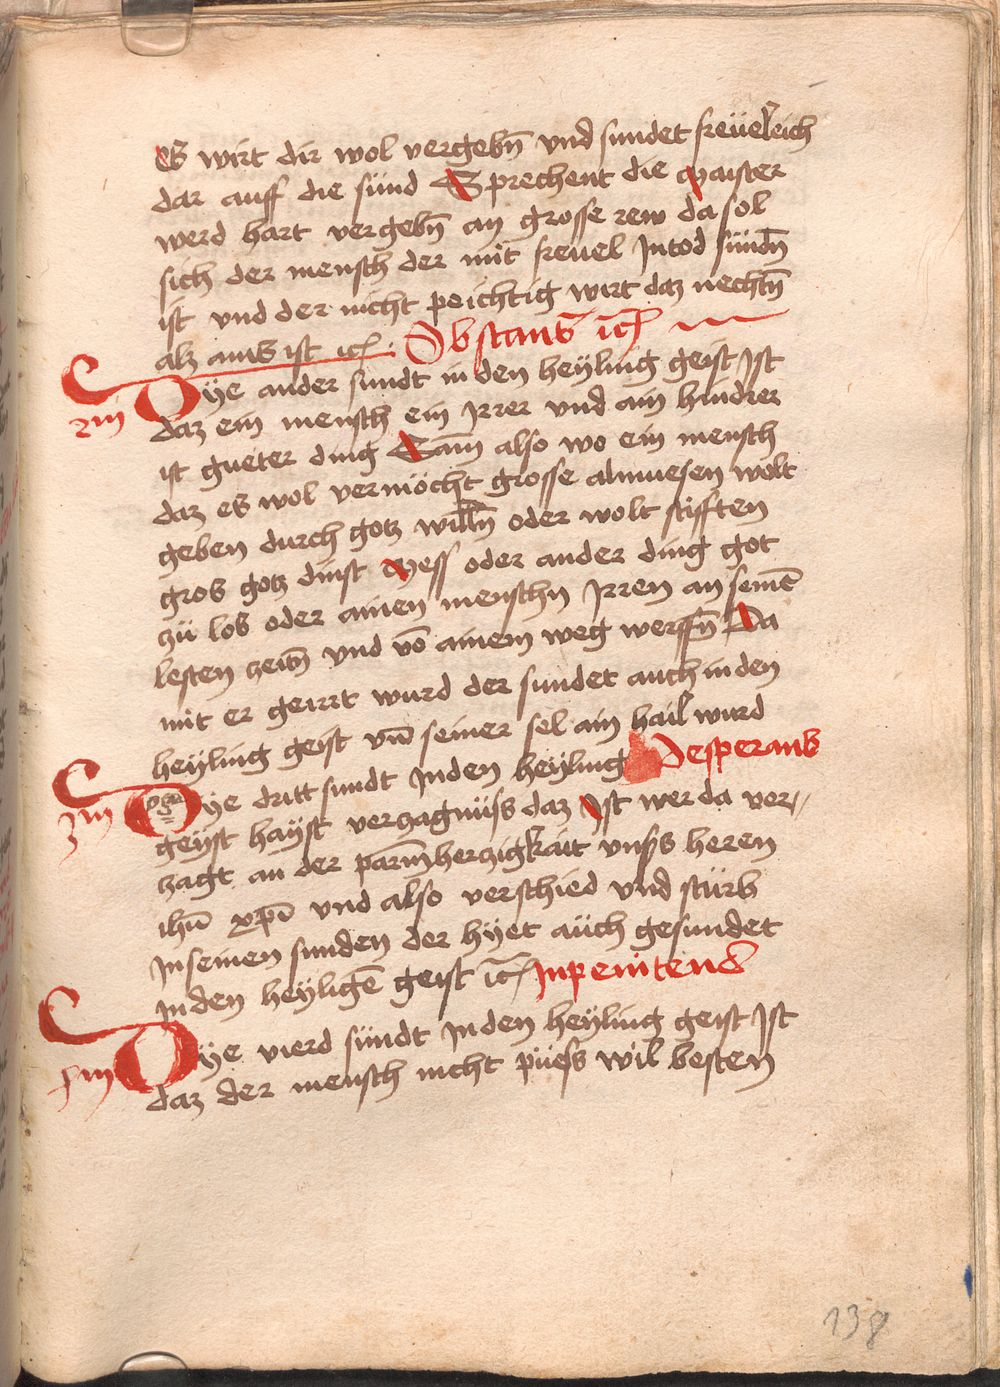 es wirt dir wol vergebn̄ vnd sundet freüeleich
dar auff die sünd Sprechent die Maister
werd hart vergebn̄ an grosse rew da sol
sich der mensch der mit freuel In tod sündn̄
ist vnd der nicht peichtig wirt daz nechtn̄
alz ains ist ꝛc̄ Obstans ꝛc̄
Dye ander sundt in den heyling geist Ist
daz ein mensch ein Irrer vnd ain hindrer
ist gueter ding Sam also wo ein mensch
daz es wol vermöcht grosse almuesen wolt
geben durch gotz willn̄ oder wolt stifften
gros gotz dinst Mess oder ander ding got
zü lob oder ainen menschn Irren an seinē
lesten zeitn̄ vnd vō ainem weg werffn̄ Da
mit er geirrt wurd der sundet auch in den
heyling geist vn̄ seiner sel ain hail wurd
Dye dritt sundt In den heyling Desperans
geyst hayst verzagnüss daz Ist wer da ver//
zagt an der parm̄herzigkait vnsers heren
ihū xp̄i vnd also verschied vnd stürb
In seinen sunden der hyet aüch gesundet
In den heyligē geist ꝛc̄ Inpenitens
Dye vierd sündt In den heyling geist Ist
daz der mensch nicht püess wil besten
138